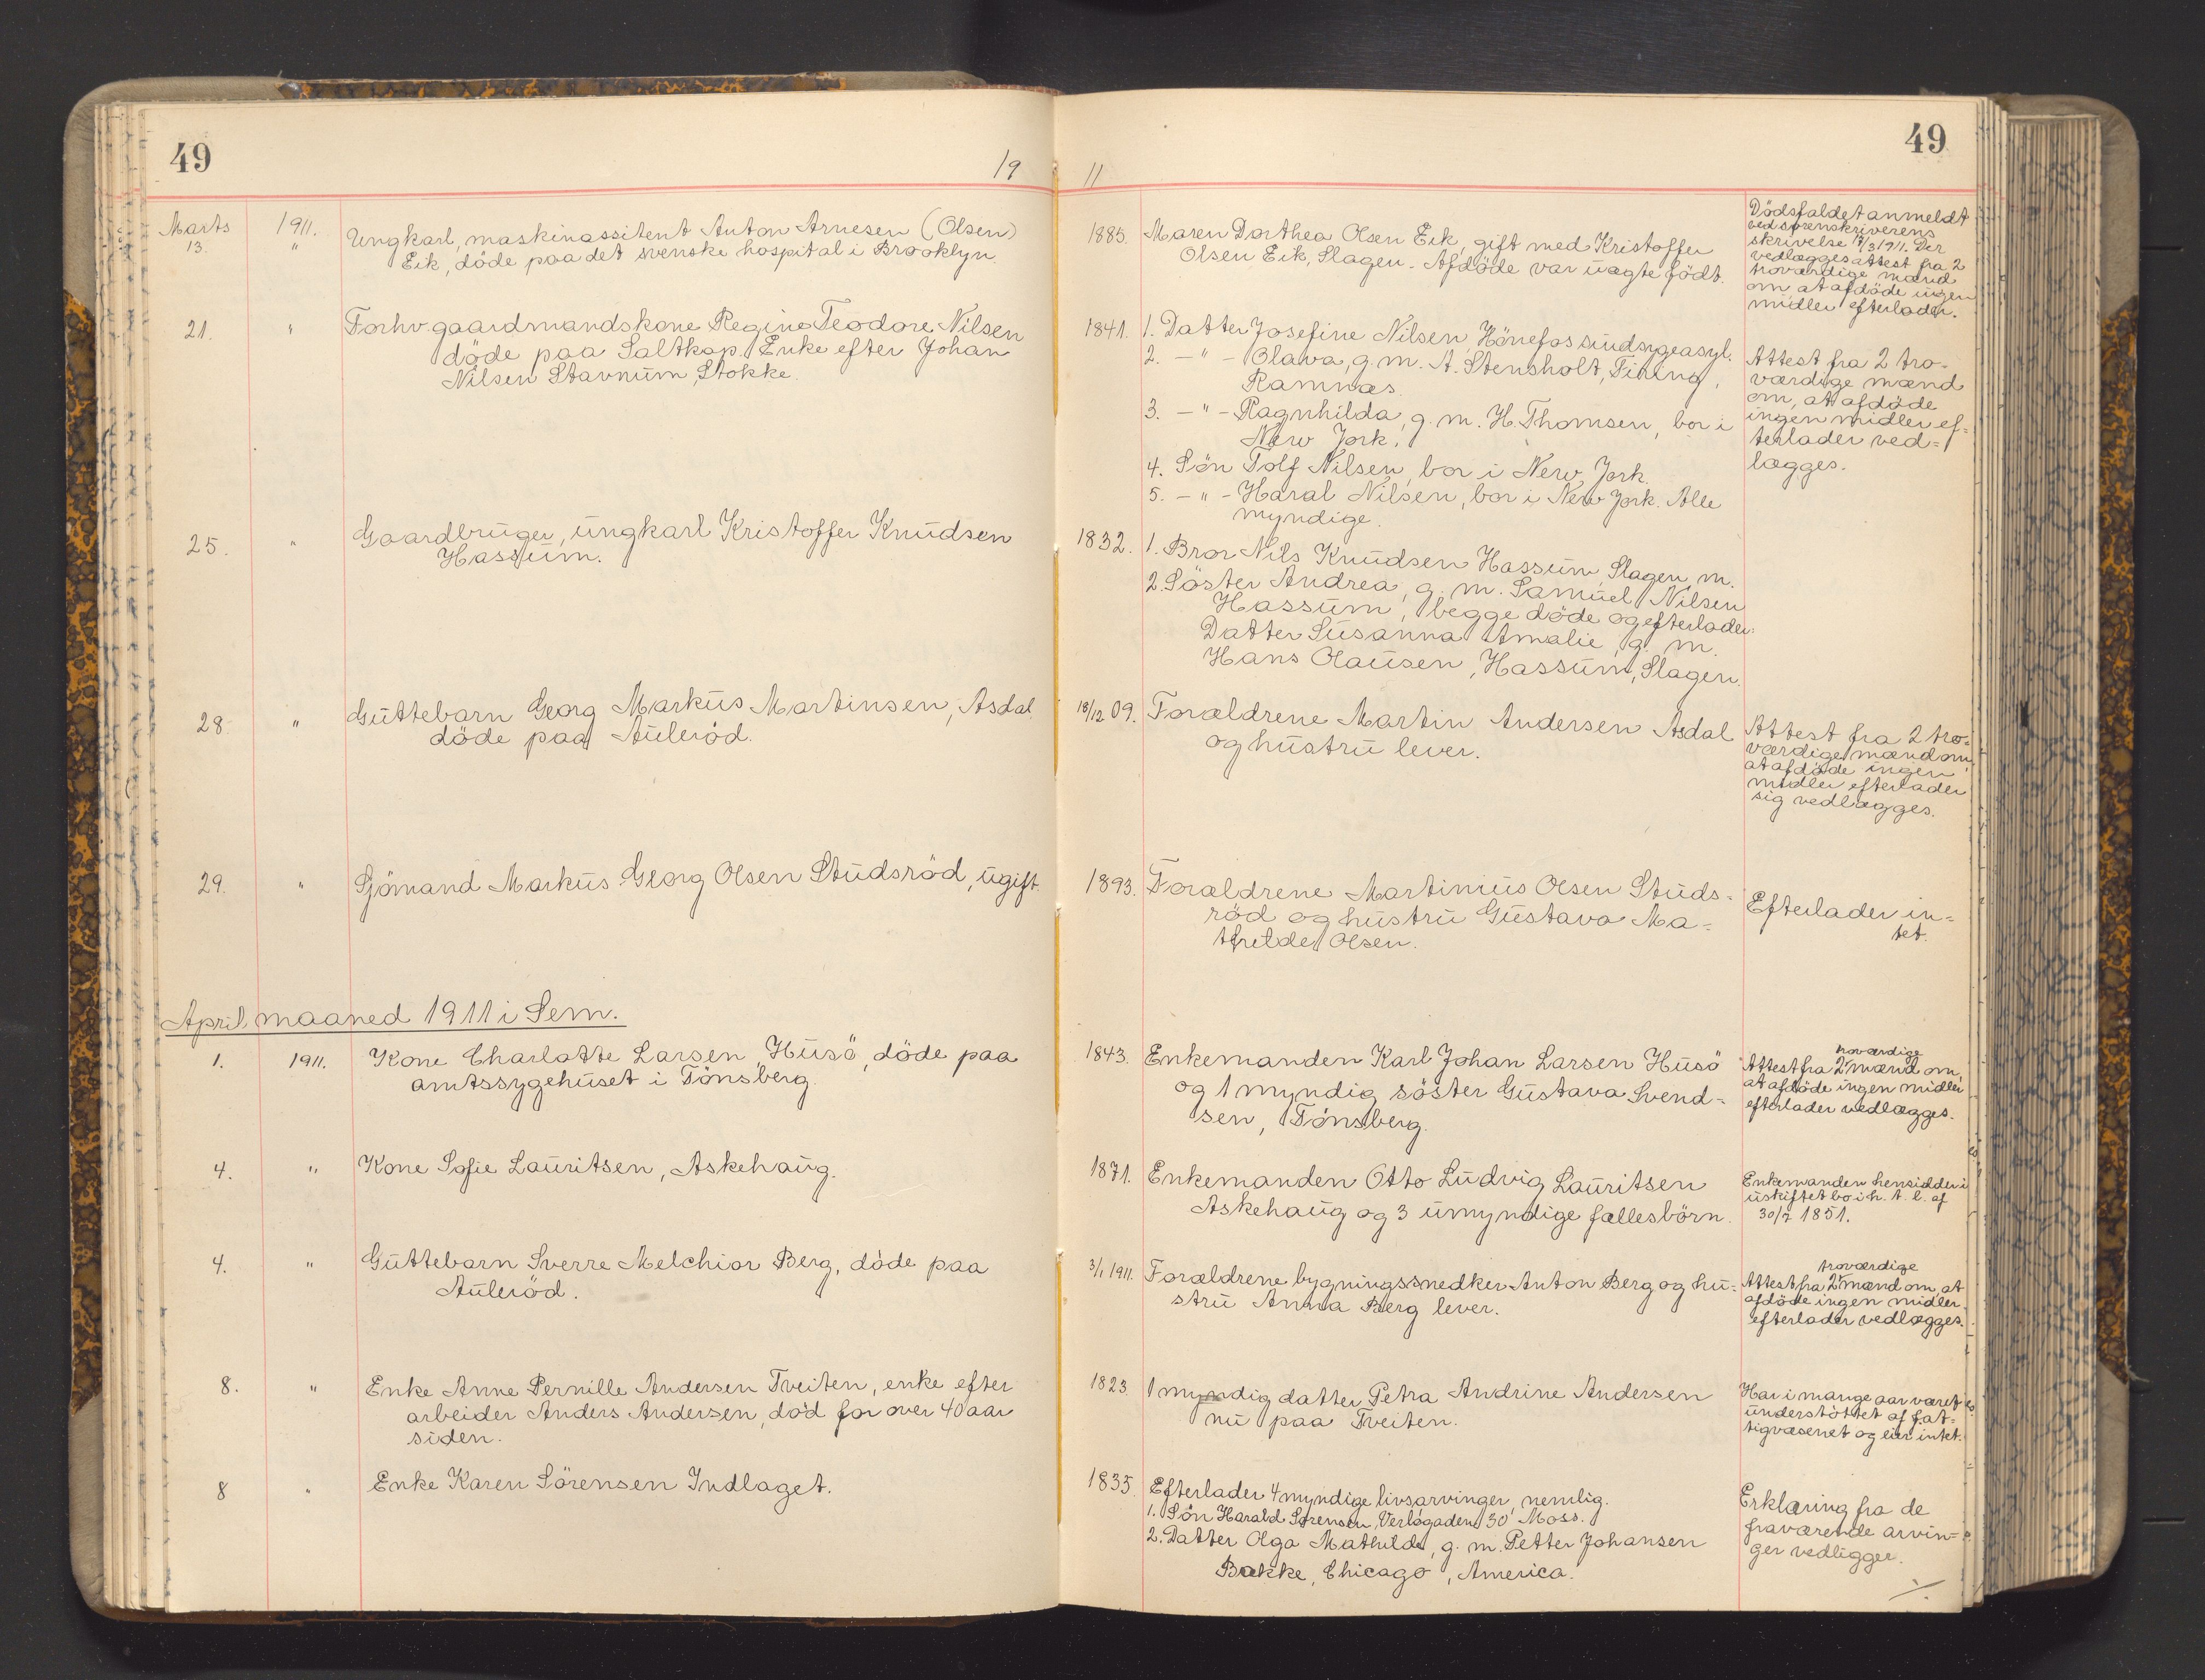 49
19 11
49
Marts 1911. Ungkarl, maskinassitent Anton Arnesen (Olsen)
13. " Eik, döde paa det svenske hospital i Brooklyn.
1885. Maren Dorthea Olsen Eik, gift med Kristoffer
Olsen Eik, Slagen. Afdöde var uægte födt.
Dödsfaldet anmeldt
ved sorenskriverens
skrivelse 17/3 1911. Der
vedlægges attest fra 2
troværdige mænd
om at afdöde ingen
midler efterlader.
21. " Forhv. gaardmandskone Regine Teodore Nilsen
döde paa Saltkop. Enke efter Johan
Nilsen Stavnum, Stokke.
1841. 1. Datter Josefine Nilsen, Hönefos sindsygeasyl.
2. -"- Olava, g. m. A. Stensholt, Fining,
Ramnæs.
3. -"- Ragnhilda, g. m. H. Thomsen, bor i
New York.
4. Sön Tolf Nilsen, bor i New York.
5. -"- Haral Nilsen, bor i New York. Alle
myndige.
Attest fra 2 tro-
værdige mænd
om, at afdöde
ingen midler ef-
terlader ved-
lægges.
25. " Gaardbruger, ungkarl Kristoffer Knudsen
Hassum.
1832. 1. Bror Nils Knudsen Hassum, Slagen, m.
2. Söster Andrea, g. m. Samuel Nilsen
Hassum, begge döde og efterlader:
Datter Susanna Amalie, g. m.
Hans Olausen, Hassum, Slagen.
28. " Guttebarn Georg Markus Martinsen, Asdal
döde paa Auleröd.
18/12 09. Forældrene Martin Andersen Asdal
og hustru lever.
Attest fra 2 tro-
værdige mænd om,
at afdöde ingen
midler efterlader
sig vedlægges.
29. " Sjömand Markus Georg Olsen Studsröd, ugift.
1893. Forældrene Martinius Olsen Studs-
röd og hustru Gustava Ma-
thilde Olsen.
Efterlader in-
tet.
April maaned 1911 i Sem.
1. 1911. Kone Charlotte Larsen, Husö, döde paa
amtssygehuset i Tönsberg.
1843. Enkemanden Karl Johan Larsen Husö
og 1 myndig söster Gustava Svend-
sen, Tönsberg.
troværdige
Attest fra 2 mænd om,
at afdöde ingen midler
efterlader vedlægges.
4. " Kone Sofie Lauritsen, Askehaug.
1871. Enkemanden Otto Ludvig Lauritsen
Askehaug og 3 umyndige fællesbörn.
Enkemanden hensidder i
uskiftet bo i h. t. l. af
30/7 1851.
4. " Guttebarn Sverre Melchior Berg, döde paa
Auleröd.
3/1 1911. Forældrene bygningssnedker Anton Berg og hu-
stru Anna Berg lever.
troværdige
Attest fra 2 mænd om, at
afdöde ingen midler
efterlader vedlægges.
8. " Enke Anne Pernille Andersen Tveiten, enke efter
arbeider Anders Andersen, död for over 40 aar
siden.
1823. 1 myndig datter Petra Andrine Andersen
nu paa Tveiten.
Har i mange aar været
understöttet af fat-
tigvæsenet og eier intet.
8 " Enke Karen Sörensen Indlaget.
1835. Efterlader 4 myndige livsarvinger, nemlig.
1. Sön Harald Sörensen, Verlegaden 30 Moss.
2. Datter Olga Mathilde, g. m. Petter Johansen
Bakke, Chicago, America.
Erklæring fra de
fraværende arvin-
ger vedligger.
./.